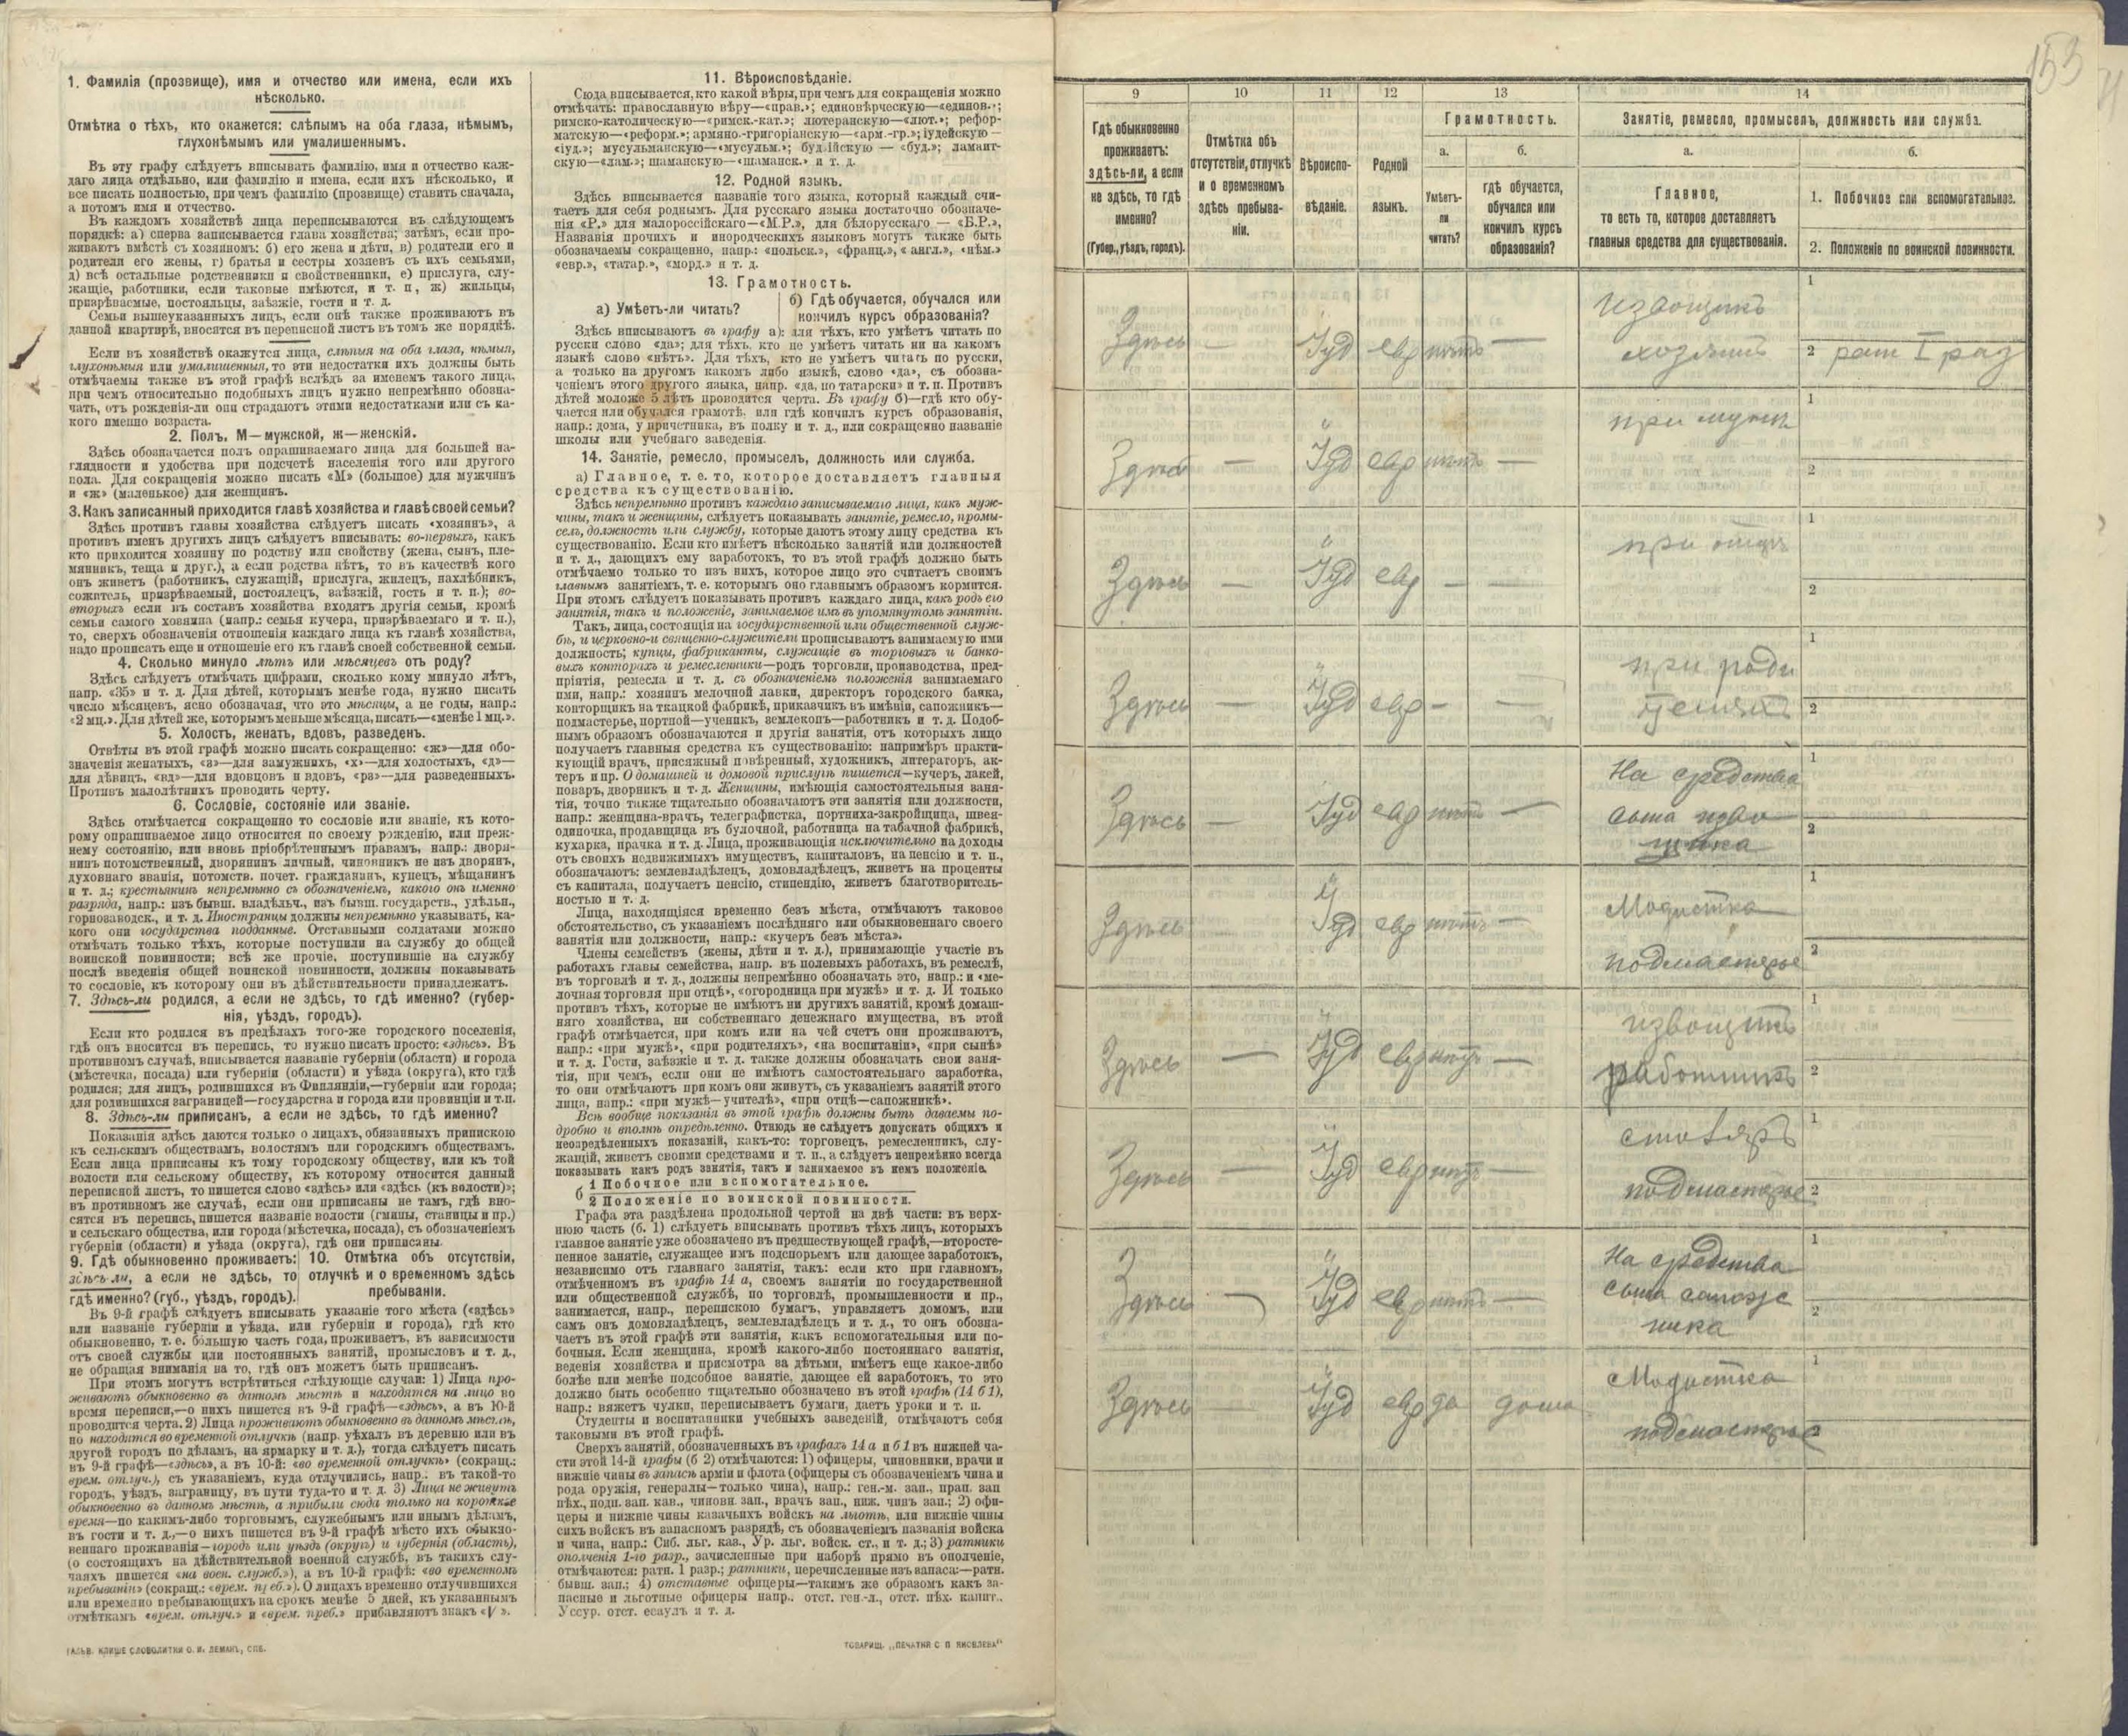 1. Фамилія (прозвище), имя и отчество или имена, если ихъ
нѣсколько.
Отмѣтка о тѣхъ, кто окажется: слѣпымъ на оба глаза, нѣмымъ,
глухонѣмымъ или умалишеннымъ.
Въ эту графу слѣдуетъ вписывать фамилію, имя и отчество каж-
даго лица отдѣльно, или фамилію и имена, если ихъ нѣсколько, и
все писать полностью, при чемъ фамилію (прозвище) ставить сначала,
а потомъ имя и отчество.
Въ каждомъ хозяйствѣ лица переписываются въ слѣдующемъ
порядкѣ: а) сперва записывается глава хозяйства; затѣмъ, если про-
живаютъ вмѣстѣ съ хозяиномъ: б) его жена и дѣти, в) родители его и
родители его жены, г) братья и сестры хозяевъ съ ихъ семьями,
д) всѣ остальные родственники и свойственники, е) прислуга, слу-
жащіе, работники, если таковые имѣются, и т. п, ж) жильцы,
призрѣваемые, постояльцы, заѣзжіе, гости и т. д.
Семьи вышеуказанныхъ лицъ, если онѣ также проживаютъ въ
данной квартирѣ, вносятся въ переписной листъ въ томъ же порядкѣ.
Если въ хозяйствѣ окажутся лица, слѣпыя на оба глаза, нѣмыя,
глухонѣмыя или умалишенныя, то эти недостатки ихъ должны быть
отмѣчаемы также въ этой графѣ вслѣдъ за именемъ такого лица,
при чемъ относительно подобныхъ лицъ нужно непремѣнно обозна-
чать, отъ рожденія-ли они страдаютъ этими недостатками или съ ка-
кого именно возраста.
2. Полъ, М—мужской, ж—женскій.
Здѣсь обозначается полъ опрашиваемаго лица для большей на-
глядности и удобства при подсчетѣ населенія того или другого
пола. Для сокращенія можно писать «М» (большое) для мужчинъ
и «ж» (маленькое) для женщинъ.
3. Какъ записанный приходится главѣ хозяйства и главѣ своей семьи?
Здѣсь противъ главы хозяйства слѣдуетъ писать «хозяинъ», а
противъ именъ другихъ лицъ слѣдуетъ вписывать: во-первыхъ, какъ
кто приходится хозяину по родству или свойству (жена, сынъ, пле-
мянникъ, теща и друг.), а если родства нѣтъ, то въ качествѣ кого
онъ живетъ (работникъ, служащій, прислуга, жилецъ, нахлѣбникъ,
сожитель, призрѣваемый, постоялецъ, заѣзжій, гость и т. п.); во-
вторыхъ если въ составъ хозяйства входятъ другія семьи, кромѣ
семьи самого хозяина (напр.: семья кучера, призрѣваемаго и т. п.),
то, сверхъ обозначенія отношенія каждаго лица къ главѣ хозяйства,
надо прописать еще и отношеніе его къ главѣ своей собственной семьи.
4. Сколько минуло лѣтъ или мѣсяцевъ отъ роду?
Здѣсь слѣдуетъ отмѣчать цифрами, сколько кому минуло лѣтъ,
напр. «35» и т. д. Для дѣтей, которымъ менѣе года, нужно писать
число мѣсяцевъ, ясно обозначая, что это мѣсяцы, а не годы, напр.:
«2 мц.». Для дѣтей же, которымъ меньше мѣсяца, писать—«менѣе 1 мц.».
5. Холостъ, женатъ, вдовъ, разведенъ.
Отвѣты въ этой графѣ можно писать сокращенно: «ж»—для обо-
значенія женатыхъ, «з»—для замужнихъ, «х»—для холостыхъ, «д»—
для дѣвицъ, «вд»—для вдовцовъ и вдовъ, «рз»—для разведенныхъ.
Противъ малолѣтнихъ проводить черту.
6. Сословіе, состояніе или званіе.
Здѣсь отмѣчается сокращенно то сословіе или званіе, къ кото-
рому опрашиваемое лицо относится по своему рожденію, или преж-
нему состоянію, или вновь пріобрѣтеннымъ правамъ, напр.: дворя-
нинъ потомственный, дворянинъ личный, чиновникъ не изъ дворянъ,
духовнаго званія, потомств. почет. гражданинъ, купецъ, мѣщанинъ
и т. д.; крестьянинъ непремѣнно съ обозначеніемъ, какого онъ именно
разряда, напр.: изъ бывш. владѣльч., изъ бывш. государств., удѣльн.,
горнозаводск., и т. д. Иностранцы должны непремѣнно указывать, ка-
кого они государства подданные. Отставными солдатами можно
отмѣчать только тѣхъ, которые поступили на службу до общей
воинской повинности; всѣ же прочіе, поступившіе на службу
послѣ введенія общей воинской повинности, должны показывать
то сословіе, къ которому они въ дѣйствительности принадлежатъ.
7. Здѣсь-ли родился, а если не здѣсь, то гдѣ именно? (губер-
нія, уѣздъ, городъ).
Если кто родился въ предѣлахъ того-же городского поселенія,
гдѣ онъ вносится въ перепись, то нужно писать просто: «здѣсь». Въ
противномъ случаѣ, вписывается названіе губерніи (области) и города
(мѣстечка, посада) или губерніи (области) и уѣзда (округа), кто гдѣ
родился; для лицъ, родившихся въ Финляндіи,—губерніи или города;
для родившихся заграницей—государства и города или провинціи и т.п.
8. Здѣсь-ли приписанъ, а если не здѣсь, то гдѣ именно?
Показанія здѣсь даются только о лицахъ, обязанныхъ припискою
къ сельскимъ обществамъ, волостямъ или городскимъ обществамъ.
Если лица приписаны къ тому городскому обществу, или къ той
волости или сельскому обществу, къ которому относится данный
переписной листъ, то пишется слово «здѣсь» или «здѣсь (къ волости)»;
въ противномъ же случаѣ, если они приписаны не тамъ, гдѣ вно-
сятся въ перепись, пишется названіе волости (гмины, станицы и пр.)
и сельскаго общества, или города (мѣстечка, посада), съ обозначеніемъ
губерніи (области) и уѣзда (округа), гдѣ они приписаны.
9. Гдѣ обыкновенно проживаетъ:
здѣсь-ли, а если не здѣсь, то
гдѣ именно? (губ., уѣздъ, городъ).
10. Отмѣтка объ отсутствіи,
отлучкѣ и о временномъ здѣсь
пребываніи.
Въ 9-й графѣ слѣдуетъ вписывать указаніе того мѣста («здѣсь»
или названіе губерніи и уѣзда, или губерніи и города), гдѣ кто
обыкновенно, т. е. большую часть года, проживаетъ, въ зависимости
отъ своей службы или постоянныхъ занятій, промысловъ и т. д.,
не обращая вниманія на то, гдѣ онъ можетъ быть приписанъ.
При этомъ могутъ встрѣтиться слѣдующіе случаи: 1) Лица про-
живаютъ обыкновенно въ данномъ мѣстѣ и находятся на лицо во
время переписи,—о нихъ пишется въ 9-й графѣ—«здѣсь», а въ 10-й
проводится черта. 2) Лица проживаютъ обыкновенно въ данномъ мѣстѣ,
но находятся во временной отлучкѣ (напр. уѣхалъ въ деревню или въ
другой городъ по дѣламъ, на ярмарку и т. д.), тогда слѣдуетъ писать
въ 9-й графѣ—«здѣсь», а въ 10-й: «во временной отлучкѣ» (сокращ.:
врем. отлуч.), съ указаніемъ, куда отлучились, напр.: въ такой-то
городъ, уѣздъ, заграницу, въ пути туда-то и т. д. 3) Лица не живутъ
обыкновенно въ данномъ мѣстѣ, а прибыли сюда только на короткое
время—по какимъ-либо торговымъ, служебнымъ или инымъ дѣламъ,
въ гости и т. д.,—о нихъ пишется въ 9-й графѣ мѣсто ихъ обыкно-
веннаго проживанія—городъ или уѣздъ (округъ) и губернія (область),
(о состоящихъ на дѣйствительной военной службѣ, въ такихъ слу-
чаяхъ пишется «на воен. служб.»), а въ 10-й графѣ: «во временномъ
пребываніи» (сокращ.: «врем. преб.»). О лицахъ временно отлучившихся
или временно пребывающихъ на срокъ менѣе 5 дней, къ указаннымъ
отмѣткамъ «врем. отлуч.» и «врем. преб.» прибавляютъ знакъ «V».
ГАЛЬВ. КЛИШЕ СЛОВОЛИТНИ О. И. ЛЕМАНЪ, СПБ.
11. Вѣроисповѣданіе.
Сюда вписывается, кто какой вѣры, при чемъ для сокращенія можно
отмѣчать: православную вѣру—«прав.»; единовѣрческую—«единов.»;
римско-католическую—«римск.-кат.»; лютеранскую—«лют.»; рефор-
матскую—«реформ.»; армяно.-григоріанскую—«арм.-гр.»; іудейскую —
«іуд.»; мусульманскую—«мусульм.»; буддійскую — «буд.»; ламаит-
скую—«лам.»; шаманскую—«шаманск.» и т. д.
12. Родной языкъ.
Здѣсь вписывается названіе того языка, который каждый счи-
таетъ для себя роднымъ. Для русскаго языка достаточно обозначе-
нія «Р.» для малороссійскаго—«М.Р.», для бѣлорусскаго — «Б.Р.»,
Названія прочихъ и инородческихъ языковъ могутъ также быть
обозначаемы сокращенно, напр.: «польск.», «франц.», «англ.», «нѣм.»
«евр.», «татар.», «морд.» и т. д.
13. Грамотность.
а) Умѣетъ-ли читать?
б) Гдѣ обучается, обучался или
кончилъ курсъ образованія?
Здѣсь вписываютъ въ графу а): для тѣхъ, кто умѣетъ читать по
русски слово «да»; для тѣхъ, кто не умѣетъ читать ни на какомъ
языкѣ слово «нѣтъ». Для тѣхъ, кто не умѣетъ читать по русски,
а только на другомъ какомъ либо языкѣ, слово «да», съ обозна-
ченіемъ этого другого языка, напр. «да, по татарски» и т. п. Противъ
дѣтей моложе 5 лѣтъ проводится черта. Въ графу б)—гдѣ кто обу-
чается или обучался грамотѣ, или гдѣ кончилъ курсъ образованія,
напр.: дома, у причетника, въ полку и т. д., или сокращенно названіе
школы или учебнаго заведенія.
14. Занятіе, ремесло, промыселъ, должность или служба.
а) Главное, т. е. то, которое доставляетъ главныя
средства къ существованію.
Здѣсь непремѣнно противъ каждаго записываемаго лица, какъ муж-
чины, такъ и женщины, слѣдуетъ показывать занятіе, ремесло, промы-
селъ, должность или службу, которые даютъ этому лицу средства къ
существованію. Если кто имѣетъ нѣсколько занятій или должностей
и т. д., дающихъ ему заработокъ, то въ этой графѣ должно быть
отмѣчаемо только то изъ нихъ, которое лицо это считаетъ своимъ
главнымъ занятіемъ, т. е. которымъ оно главнымъ образомъ кормится.
При этомъ слѣдуетъ показывать противъ каждаго лица, какъ родъ его
занятія, такъ и положеніе, занимаемое имъ въ упомянутомъ занятіи.
Такъ, лица, состоящія на государственной или общественной служ-
бѣ, и церковно-и священно-служители прописываютъ занимаемую ими
должность; купцы, фабриканты, служащіе въ торговыхъ и банко-
выхъ конторахъ и ремесленники—родъ торговли, производства, пред-
пріятія, ремесла и т. д. съ обозначеніемъ положенія занимаемаго
ими, напр.: хозяинъ мелочной лавки, директоръ городского банка,
конторщикъ на ткацкой фабрикѣ, приказчикъ въ имѣніи, сапожникъ—
подмастерье, портной—ученикъ, землекопъ—работникъ и т. д. Подоб-
нымъ образомъ обозначаются и другія занятія, отъ которыхъ лицо
получаетъ главныя средства къ существованію: напримѣръ практи-
кующій врачъ, присяжный повѣренный, художникъ, литераторъ, ак-
теръ и пр. О домашней и домовой прислугѣ пишется—кучеръ, лакей,
поваръ, дворникъ и т. д. Женщины, имѣющія самостоятельныя заня-
тія, точно также тщательно обозначаютъ эти занятія или должности,
напр.: женщина-врачъ, телеграфистка, портниха-закройщица, швея-
одиночка, продавщица въ булочной, работница на табачной фабрикѣ,
кухарка, прачка и т. д. Лица, проживающія исключительно на доходы
отъ своихъ недвижимыхъ имуществъ, капиталовъ, на пенсію и т. п.,
обозначаютъ: землевладѣлецъ, домовладѣлецъ, живетъ на проценты
съ капитала, получаетъ пенсію, стипендію, живетъ благотворитель-
ностью и т. д.
Лица, находящіяся временно безъ мѣста, отмѣчаютъ таковое
обстоятельство, съ указаніемъ послѣдняго или обыкновеннаго своего
занятія или должности, напр.: «кучеръ безъ мѣста».
Члены семействъ (жены, дѣти и т. д.), принимающіе участіе въ
работахъ главы семейства, напр. въ полевыхъ работахъ, въ ремеслѣ,
въ торговлѣ и т. д., должны непремѣнно обозначать это, напр.: и «ме-
лочная торговля при отцѣ», «огородница при мужѣ» и т. д. И только
противъ тѣхъ, которые не имѣютъ ни другихъ занятій, кромѣ домаш-
няго хозяйства, ни собственнаго денежнаго имущества, въ этой
графѣ отмѣчается, при комъ или на чей счетъ они проживаютъ,
напр.: «при мужѣ», «при родителяхъ», «на воспитаніи», «при сынѣ»
и т. д. Гости, заѣзжіе и т. д. также должны обозначать свои заня-
тія, при чемъ, если они не имѣютъ самостоятельнаго заработка,
то они отмѣчаютъ при комъ они живутъ, съ указаніемъ занятій этого
лица, напр.: «при мужѣ—учителѣ», «при отцѣ—сапожникѣ».
Всѣ вообще показанія въ этой графѣ должны быть даваемы по-
дробно и вполнѣ опредѣленно. Отнюдь не слѣдуетъ допускать общихъ и
неопредѣленныхъ показаній, какъ-то: торговецъ, ремесленникъ, слу-
жащій, живетъ своими средствами и т. п., а слѣдуетъ непремѣнно всегда
показывать какъ родъ занятія, такъ и занимаемое въ немъ положеніе.
б 1 Побочное или вспомогательное.
2 Положеніе по воинской повинности.
Графа эта раздѣлена продольной чертой на двѣ части: въ верх-
нюю часть (б. 1) слѣдуетъ вписывать противъ тѣхъ лицъ, которыхъ
главное занятіе уже обозначено въ предшествующей графѣ,—второсте-
пенное занятіе, служащее имъ подспорьемъ или дающее заработокъ,
независимо отъ главнаго занятія, такъ: если кто при главномъ,
отмѣченномъ въ графѣ 14 а, своемъ занятіи по государственной
или общественной службѣ, по торговлѣ, промышленности и пр.,
занимается, напр., перепискою бумагъ, управляетъ домомъ, или
самъ онъ домовладѣлецъ, землевладѣлецъ и т. д., то онъ обозна-
чаетъ въ этой графѣ эти занятія, какъ вспомогательныя или по-
бочныя. Если женщина, кромѣ какого-либо постояннаго занятія,
веденія хозяйства и присмотра за дѣтьми, имѣетъ еще какое-либо
болѣе или менѣе подсобное занятіе, дающее ей заработокъ, то это
должно быть особенно тщательно обозначено въ этой графѣ (14 б 1),
напр.: вяжетъ чулки, переписываетъ бумаги, даетъ уроки и т. п.
Студенты и воспитанники учебныхъ заведеній, отмѣчаютъ себя
таковыми въ этой графѣ.
Сверхъ занятій, обозначенныхъ въ графахъ 14 а и б 1 въ нижней ча-
сти этой 14-й графы (б 2) отмѣчаются: 1) офицеры, чиновники, врачи и
нижніе чины въ запасѣ арміи и флота (офицеры съ обозначеніемъ чина и
рода оружія, генералы—только чина), напр.: ген.-м. зап., прап. зап
пѣх., подп. зап. кав., чиновн. зап., врачъ зап., ниж. чинъ зап.; 2) офи-
церы и нижніе чины казачьихъ войскъ на льготѣ, или нижніе чины
сихъ войскъ въ запасномъ разрядѣ, съ обозначеніемъ названія войска
и чина, напр.: Сиб. льг. каз., Ур. льг. войск. ст., и т. д.; 3) ратники
ополченія 1-го разр., зачисленные при наборѣ прямо въ ополченіе,
отмѣчаются: ратн. 1 разр.; ратники, перечисленные изъ запаса:—ратн.
бывш. зап.; 4) отставные офицеры—такимъ же образомъ какъ за-
пасные и льготные офицеры напр.. отст. ген.-л., отст. пѣх. капит..
Уссур. отст. есаулъ и т. д.
ТОВАРИЩ. „ПЕЧАТНЯ С. П. ЯКОВЛЕВА"
153
9 10 11 12 13 14
Гдѣ обыкновенно
проживаетъ:
здѣсь-ли, а если
не здѣсь, то гдѣ
именно?
(Губер., уѣздъ, городъ).
Отмѣтка объ
отсутствіи, отлучкѣ
и о временномъ
здѣсь пребыва-
ніи.
Вѣроиспо-
вѣданіе.
Родной
языкъ.
Грамотность.
а.
Умѣетъ-
ли
читать?
б.
гдѣ обучается,
обучался или
кончилъ курсъ
образованія?
Занятіе, ремесло, промыселъ, должность или служба.
а.
Главное,
то есть то, которое доставляетъ
главныя средства для существованія.
б.
1. Побочное или вспомогательное.
2. Положеніе по воинской повинности.
извощикъ 1
Здѣсь — Іуд евр нѣтъ — хозяинъ 2 рат I раз
при мужѣ 1
Здѣсь — Іуд евр нѣтъ — 2
при отцѣ 1
Здѣсь — Іуд евр — — 2
при роди 1
Здѣсь — Іуд евр — — телях 2
На средства 1
Здѣсь — Іуд евр нѣтъ — сына изво 2
щика
Модистка 1
Здѣсь — Іуд евр нѣтъ — подмастерье 2
извощикъ 1
Здѣсь — Іуд евр нѣтъ — работникъ 2
столяръ 1
Здѣсь — Іуд евр нѣтъ — подмастерье 2
На средства 1
Здѣсь — Іуд евр нѣтъ — сына сапож 2
ника
Модистка 1
Здѣсь — Іуд евр да дома подмастерье 2